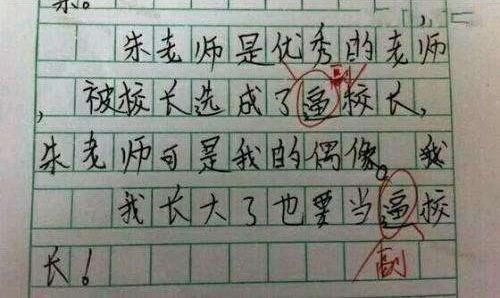 朱老师是优秀的老师
副
,被校长选成了逼校长,
朱老师可是我的偶像。我
我长大了也要当逼校
长!
副